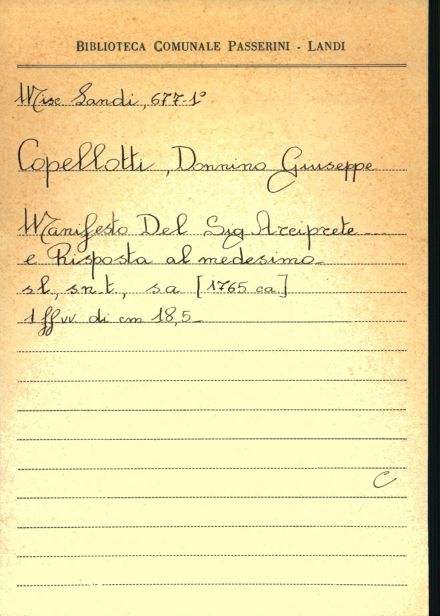 BIBLIOTECA COMUNALE PASSERINI - LANDI
Misc Landi, 677-1°
Copellotti, Donnino Giuseppe
Manifesto Del Sig Arciprete ...
e Risposta al medesimo_
sl, sn.t., sa [1765 ca]
1 ff vv. di cm 18,5_
C